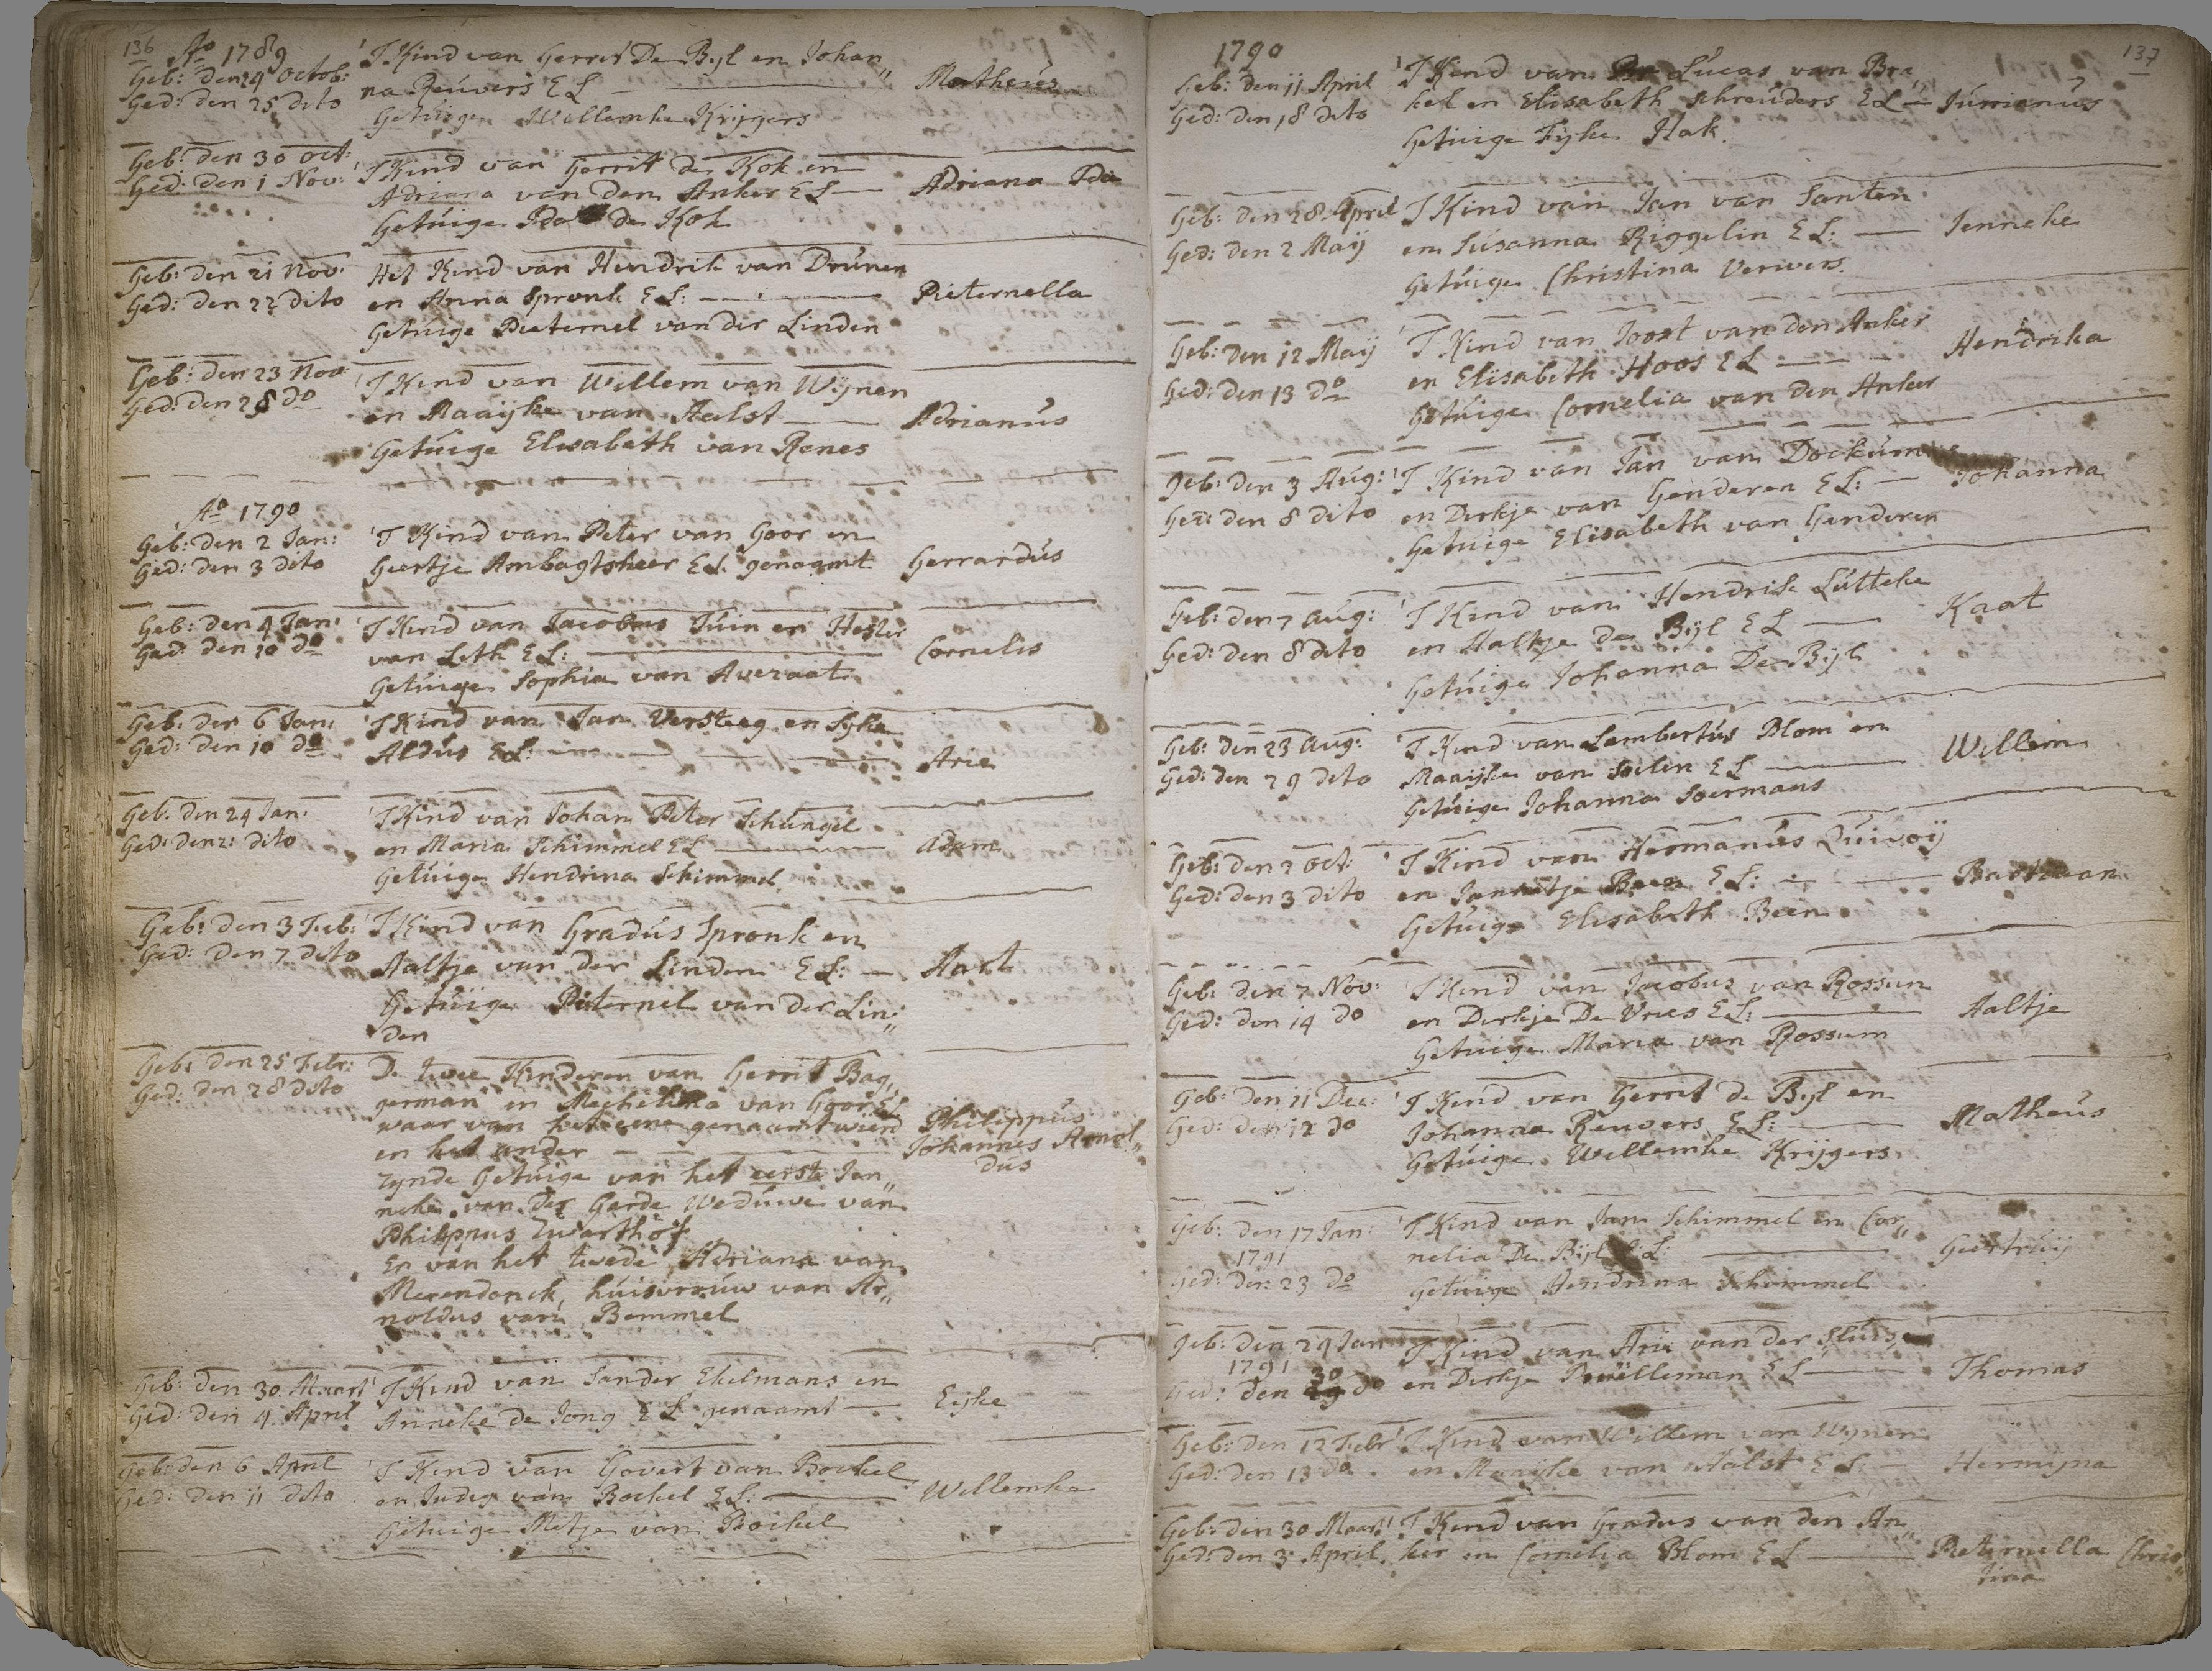 136
Ao 1789
Geb: den 24 Octob:
Ged: den 25 dito
'T Kind van Gerrit De Byl en Johan„
na Reuvers E L
Getuige Willemke Krijgers
Matheus
Geb: den 30 oct:
Ged: den 1 Nov:
'T Kind van Gerrit de Kok en
Adriana van den Anker E L
Getuige Ida de Kok
Adriana Ida
Geb: den 21 Nov:
Ged: den 22 dito
Het Kind van Hendrik van Drunen
en Anna Spronk E L:
Getuige Pieternel van der Linden
Pieternella
Geb: den 23 Nov
Ged: den 28 do
'T Kind van Willem van Wijnen
en Maaijke van Aalst
Getuige Elisabeth van Renes
Adrianus
Ao 1790
Geb: den 2 Jan:
Ged: den 3 dito
'T Kind van Peter van Goor en
Geertje Ambagtsheer E L. genaamt
Gerrardus
Geb: den 4 Jan:
Ged: den 10 do
'T Kind van Jacobus Tuin en Hester
van Leth E L:
Getuige Sophia van Averaat
Cornelis
Geb: den 6 Jan:
Ged: den 10 do
'T Kind van Jan Versteeg en Sijke
Aldus E L:
Arie
Geb. den 24 Jan:
Ged: den dito
'T Kind van Johan Peter Schungel
en Maria Schimmel E L
Getuige Hendrina Schimmel
Adam
Geb: den 3 Feb:
Ged: den 7 dito
'T Kind van Gradus Spronk en
Aaltje van der Linden E L:
Getuige Pieternel van der Lin„
den
Aart
Geb: den 25 Febr:
Ged: den 28 dito
De twee Kinderen van Gerrit Bag„
german en Mechelina van Goor E L
waar van het eene genaamt wierd
en het ander
zynde Getuige van het eerste Jen„
neke van der Garde Weduwe van
Philippus Zwarthof
En van het twede Adriana van
Merendonck, huisvrouw van Ar„
noldus van Bommel
Philippus
Johannes Arnol„
dus
Geb: den 30 Maart
Ged: den 4 April
'T Kind van Sander Ekelmans en
Anneke de Jong E L genaamt
Eijke
Geb: den 6 April
Ged: den 11 dito
'T Kind van Govert van Boekel
en Judig van Boekel E L:
Getuige Metje van Boekel
Willemke
137
1790
Geb: den 11 April
Ged: den 18 dito
'T Kind van Lucas van Bra„
kel en Elisabeth Schreuders E L
Getuige Fijke Hak.
Jurrianus
Geb: den 28 April
Ged: den 2 Maij
'T Kind van Jan van Santen
en Susanna Riggelin E L:
Getuige Christina Verwers.
Jenneke
Geb: den 12 Maij
Ged: den 13 do
'T Kind van Joost van den Anker
en Elisabeth Hoos E L
Getuige Cornelia van den Anker
Hendrika
Geb: den 3 Aug:
Ged: den 8 dito
'T Kind van Jan van Dockum
en Dirkje van Genderen E L:
Getuige Elisabeth van Genderen
Johanna
Geb: den 7 Aug:
Ged: den 8 dito
'T Kind van Hendrik Lutteke
en Aaltje de Bijl E L
Getuige Johanna De Bijl
Kaat
Geb: den 23 Aug:
Ged: den 29 dito
'T Kind van Lambertus Blom en
Maaijke van Soelen E L
Getuige Johanna Soermans
Willem
Geb: den 2 Oct:
Ged: den 3 dito
'T Kind van Hermanus Quivoij
en Jannetje Been E L:
Getuige Elisabeth Been
Bastiaan
Geb: den 7 Nov:
Ged: den 14 do
'T Kind van Jacobus van Rossum
en Dirkje De Vries E L:
Getuige Maria van Rossum
Aaltje
Geb: den 11 Dec:
Ged: den 12 do
'T Kind van Gerrit de Byl en
Johanna Reuvers E L:
Getuige Willemke Krijgers
Matheus
Geb: den 17 Jan:
1791
Ged: den 23 do
'T Kind van Jan Schimmel en Cor„
nelia De Bijl E L:
Getuige Hendrina Schimmel
Geertruij
Geb: den 24 Jan
1791
Ged: den 30 do
'T Kind van Arie van der Sluis
en Dirkje E L
Thomas
Geb: den 12 Febr
Ged: den 13 do
'T Kind van Willem van Wijnen
en Maaijke van Aalst E L:
Hermijna
Geb: den 30 Maart
Ged: den 3 April
'T Kind van Gradus van den An„
ker en Cornelia Blom E L
Pieternella Chris„
tina